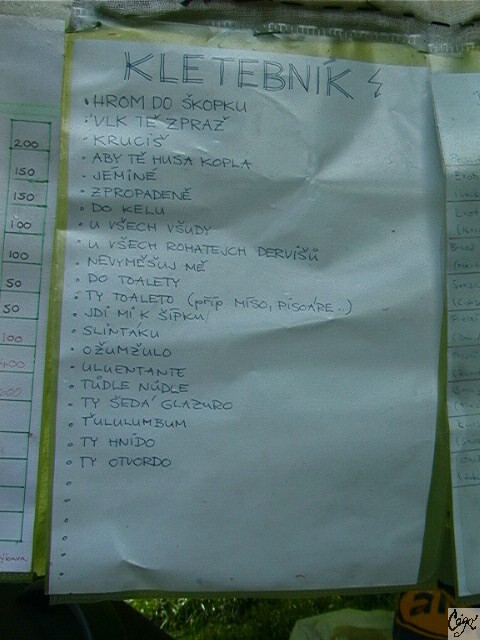 KLETEBNÍK
HROM DO ŠKOPKU
VLK TĚ ZPRAŽ
KRUCIŠ
ABY TĚ HUSA KOPLA
JÉMINÉ
ZPROPADENĚ
DO KELU
U VŠECH VŠUDY
U VŠECH ROHATEJCH DERVIŠŮ
NEVYMĚŠUJ MĚ
DO TOALETY
TY TOALETO (PŘÍP MÍSO, PISOÁRE..)
JDI MI K ŠÍPKU
SLINTÁKU
OŽUMŽULO
ULUENTANTE
TŮDLE NŮDLE
TY ŠEDÁ GLAZURO
ŤULULUMBUM
TY HNÍDO
TY OTVORDO
200
150
150
100
100
50
50
100
400